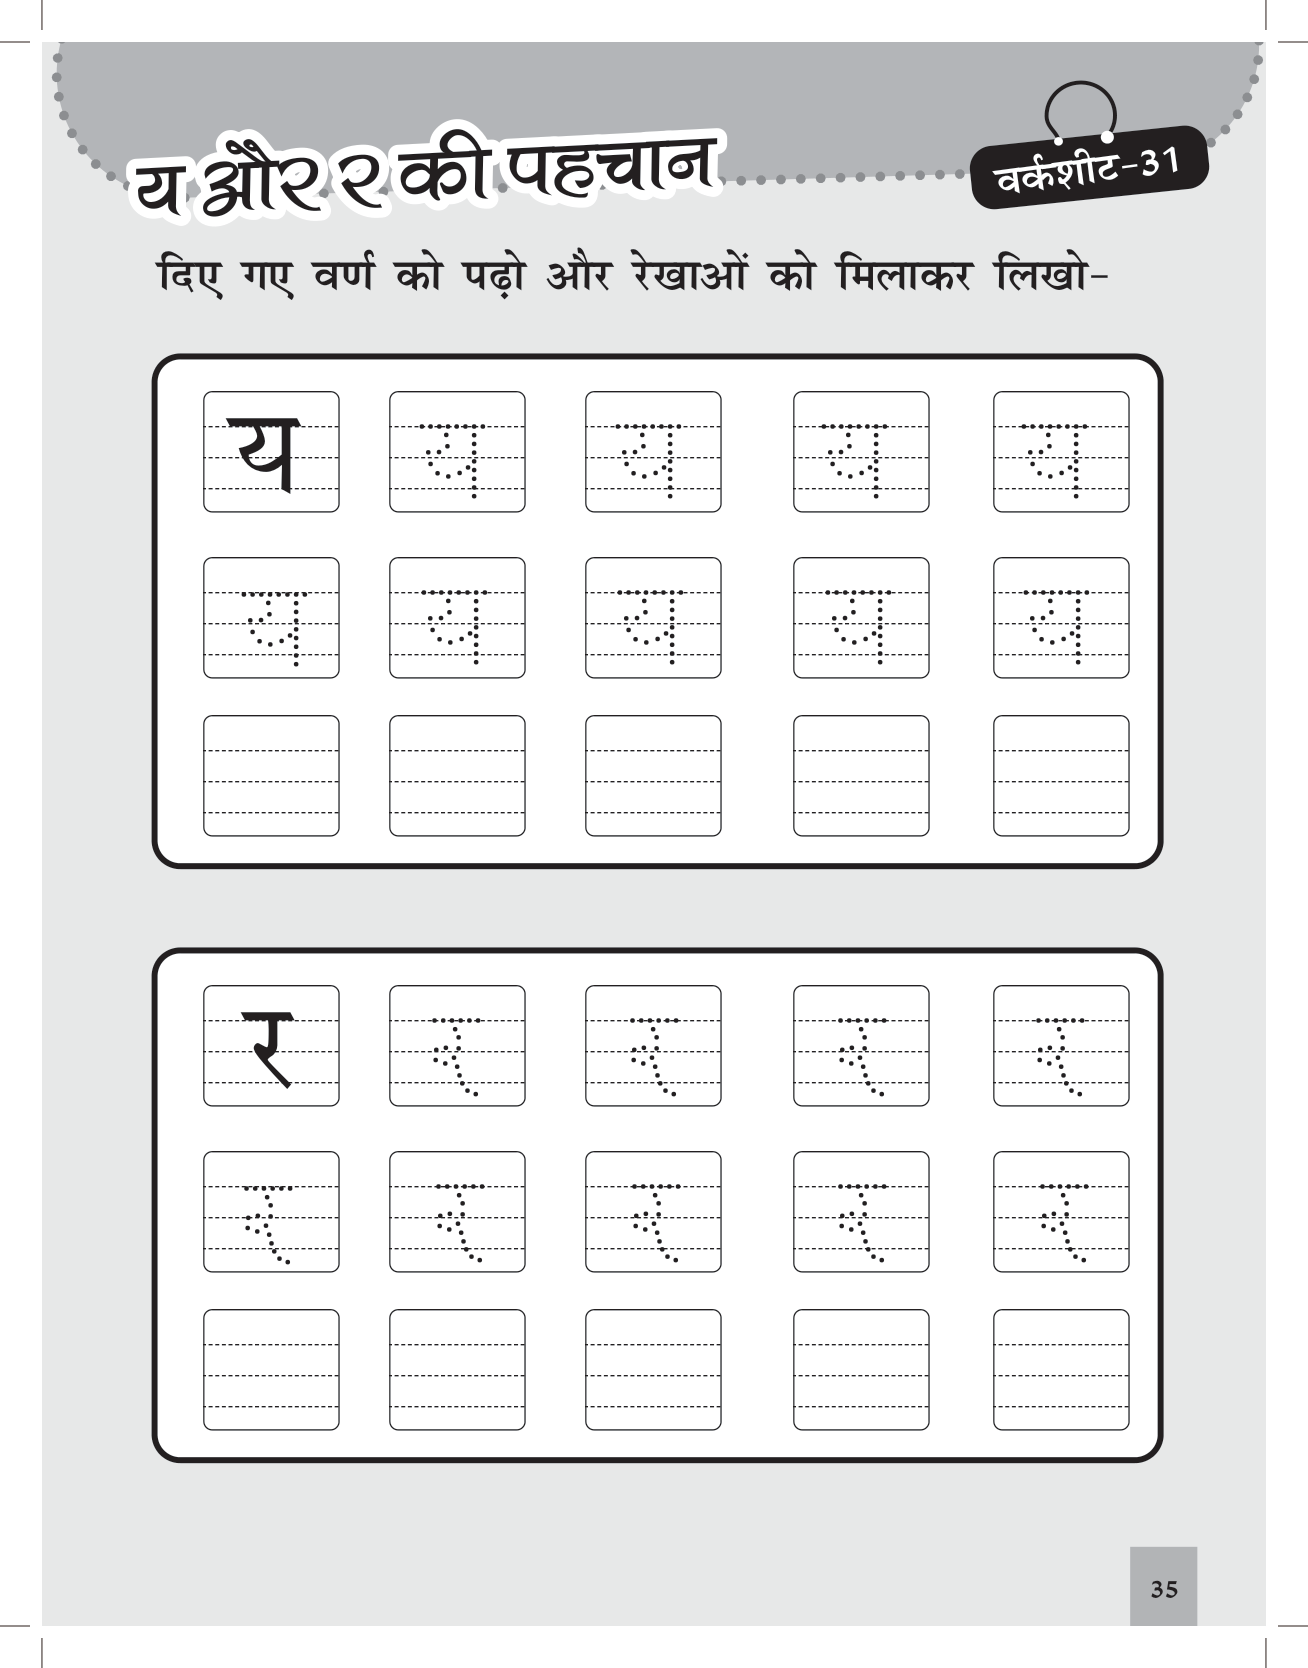 य और र की पहचान
वर्कशीट-31
दिए गए वर्ण को पढ़ो और रेखाओं को मिलाकर लिखो-
य य य य य
य य य य य
र र र र र
र र र र र
35